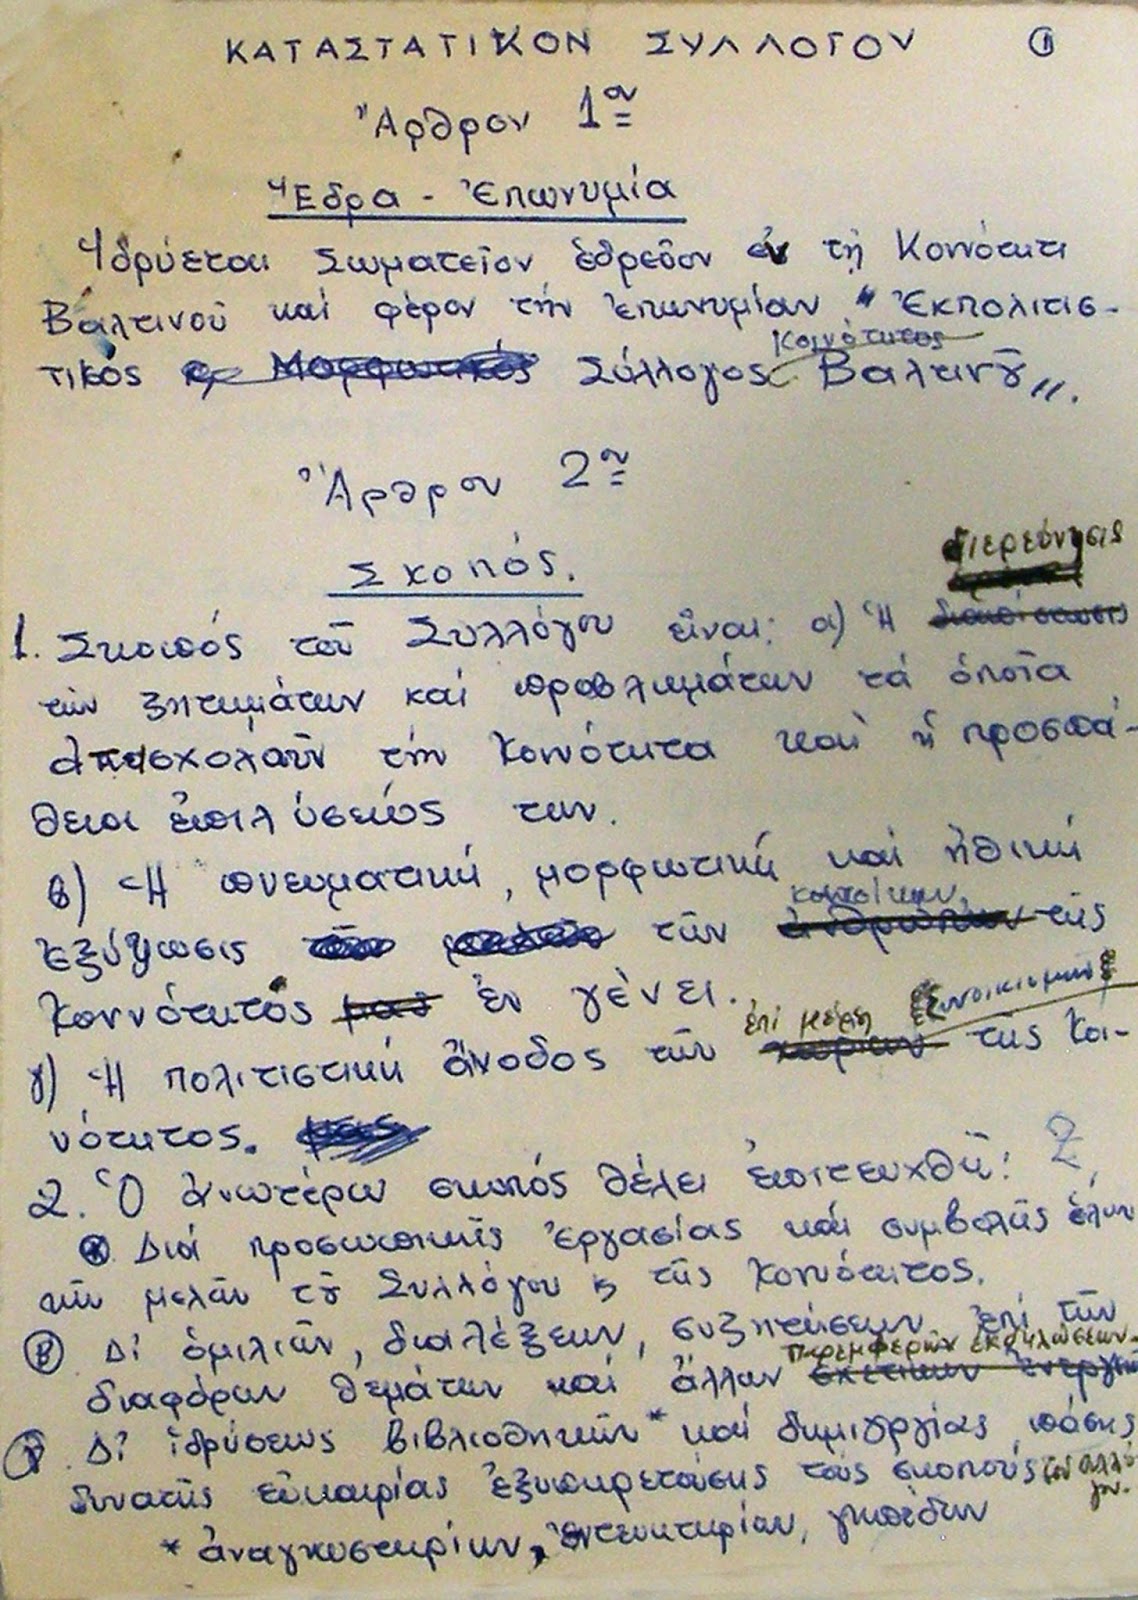 ΚΑΤΑΣΤΑΤΙΚΟΝ ΣΥΛΛΟΓΟΥ 1
Ἄρθρον 1ον
Ἕδρα - Ἐπωνυμία
Ἱδρύεται Σωματεῖον ἑδρεῦον ἐν τῇ Κοινότητι
Βαλτινοῦ καί φέρον τήν ἐπωνυμίαν " Ἐκπολιτισ-
Κοινότητος
τικός ϗ Μορφωτικός Σύλλογος Βαλτινοῦ ".
Ἄρθρον 2ον
Σκοπός.
διερεύνησις
1. Σκοπός τοῦ Συλλόγου εἶναι: α) Ἡ
τῶν ζητημάτων καί προβλημάτων τά ὁποῖα
ἀπασχολοῦν τήν Κοινότητα καί ἡ προσπά-
θεια ἐπιλύσεώς των.
β) Ἡ πνευματική, μορφωτική καί ἠθική
κατοίκων
ἐξύψωσις τῶν ἀνθρώπων τῆς
Κοινότητος μας ἐν γένει.
ἐπί μέρους Συνοικισμῶν
γ) Ἡ πολιτιστική ἄνοδος τῶν χωρίων τῆς Κοι-
νότητος. μας
2. Ὁ ἀνωτέρω σκοπός θέλει ἐπιτευχθῆ: 2
Διά προσωπικῆς ἐργασίας καί συμβολῆς ὅλων
τῶν μελῶν τοῦ Συλλόγου ϗ τῆς Κοινότητος.
Β Δι' ὁμιλιῶν, διαλέξεων, συζητήσεων ἐπί τῶν
παρεμφερῶν ἐκδηλώσεων.
διαφόρων θεμάτων καί ἄλλων σχετικῶν ἐνεργειῶν
Γ Δι' ἱδρύσεως βιβλιοθηκῶν * καί δημιουργίας πάσης
δυνατῆς εὐκαιρίας ἐξυπηρετούσης τούς σκοπούς τοῦ Συλλό-
γου.
* ἀναγνωστηρίων, ἐντευκτηρίων, γηπέδων